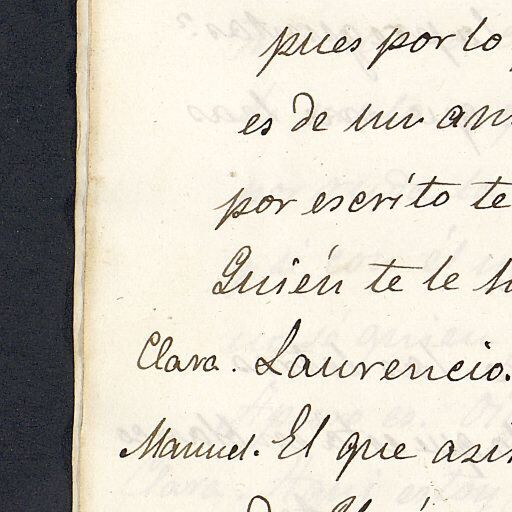 pues por lo
es de un am
por escrito te
Quién te le h
Clara. Laurencio.
Manuel. El que asis